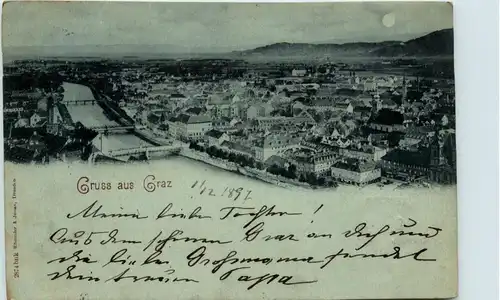 Gruss aus Graz
11/12 1897.
Meine liebe Tochter!
Aus dem schönen Graz an dich und
die liebe Grossmama sendet
dein treuer Papa